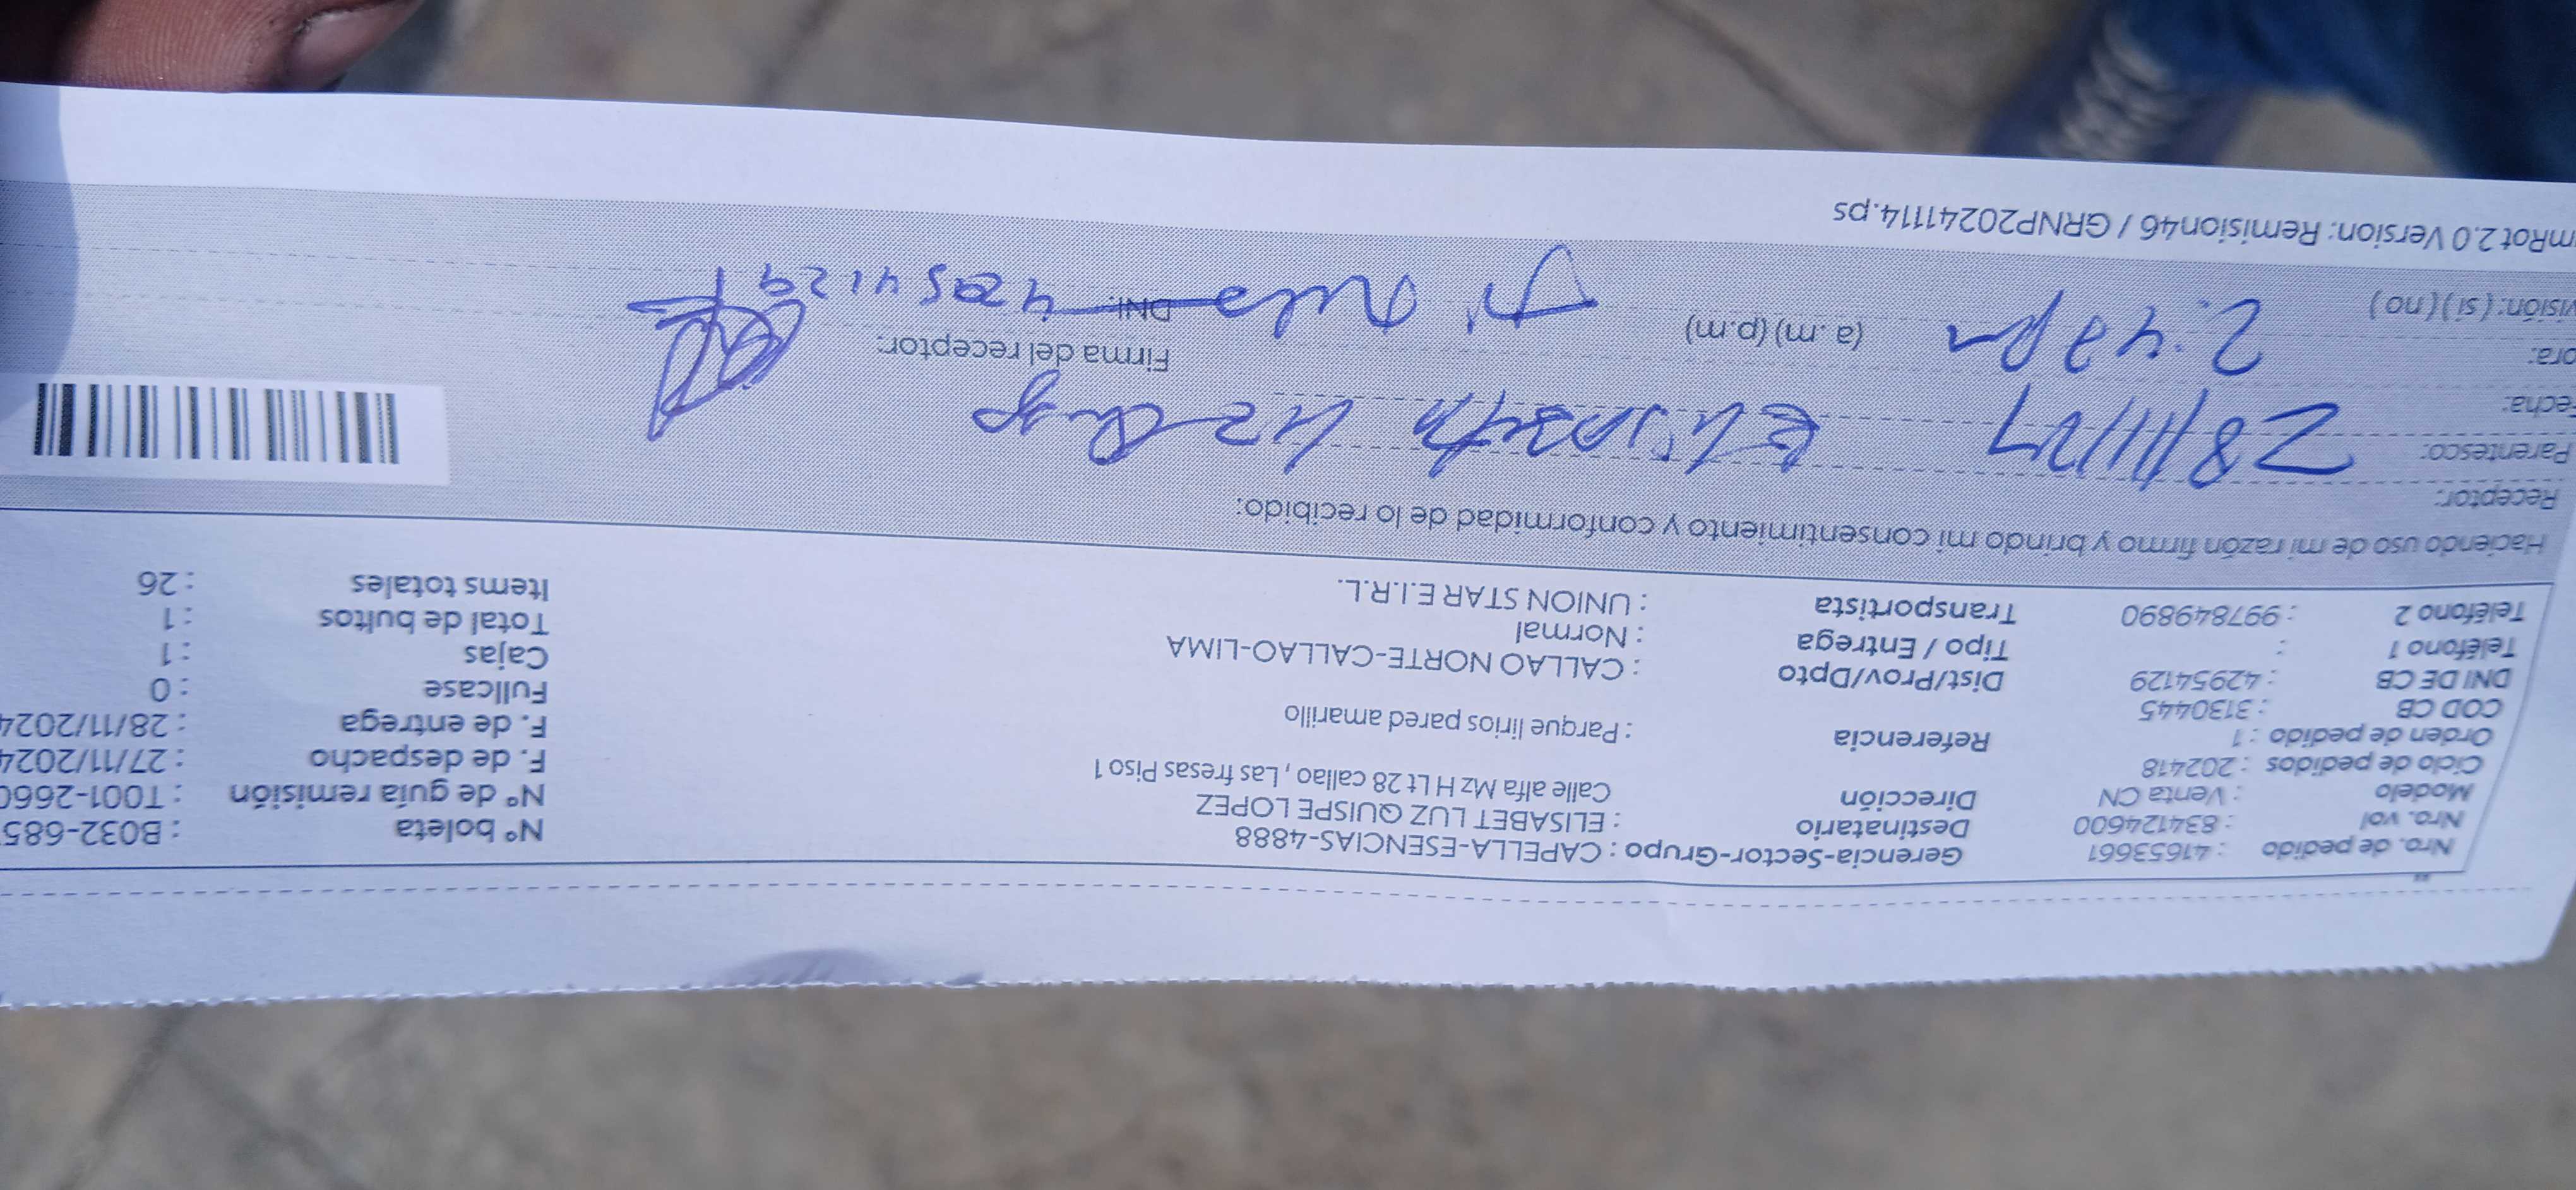 Nro. de pedido : 41653661 Gerencia-Sector-Grupo : CAPELLA-ESENCIAS-4888 N° boleta : B032-685
Nro. vol : 834124600 Destinatario : ELISABET LUZ QUISPE LOPEZ N° de guía remisión : T001-2660
Modelo : Venta CN Dirección Calle alfa Mz H Lt 28 callao , Las fresas Piso 1 F. de despacho : 27/11/2024
Ciclo de pedidos : 202418 F. de entrega : 28/11/2024
Orden de pedido : 1 Referencia : Parque lirios pared amarillo Fullcase : 0
COD CB : 3130445 Cajas : 1
DNI DE CB : 42954129 Dist/Prov/Dpto : CALLAO NORTE-CALLAO-LIMA Total de bultos : 1
Teléfono 1 : Tipo / Entrega : Normal Items totales : 26
Teléfono 2 : 997849890 Transportista : UNION STAR E.I.R.L.
Haciendo uso de mi razón firmo y brindo mi consentimiento y conformidad de lo recibido:
Receptor:
Parentesco:
28/11/24
echa:
ora: 2:47 pm (a.m) (p.m) Firma del receptor:
visión: ( si ) ( no ) DNI:
mRot 2.0 Version: Remision46 / GRNP202411114.ps